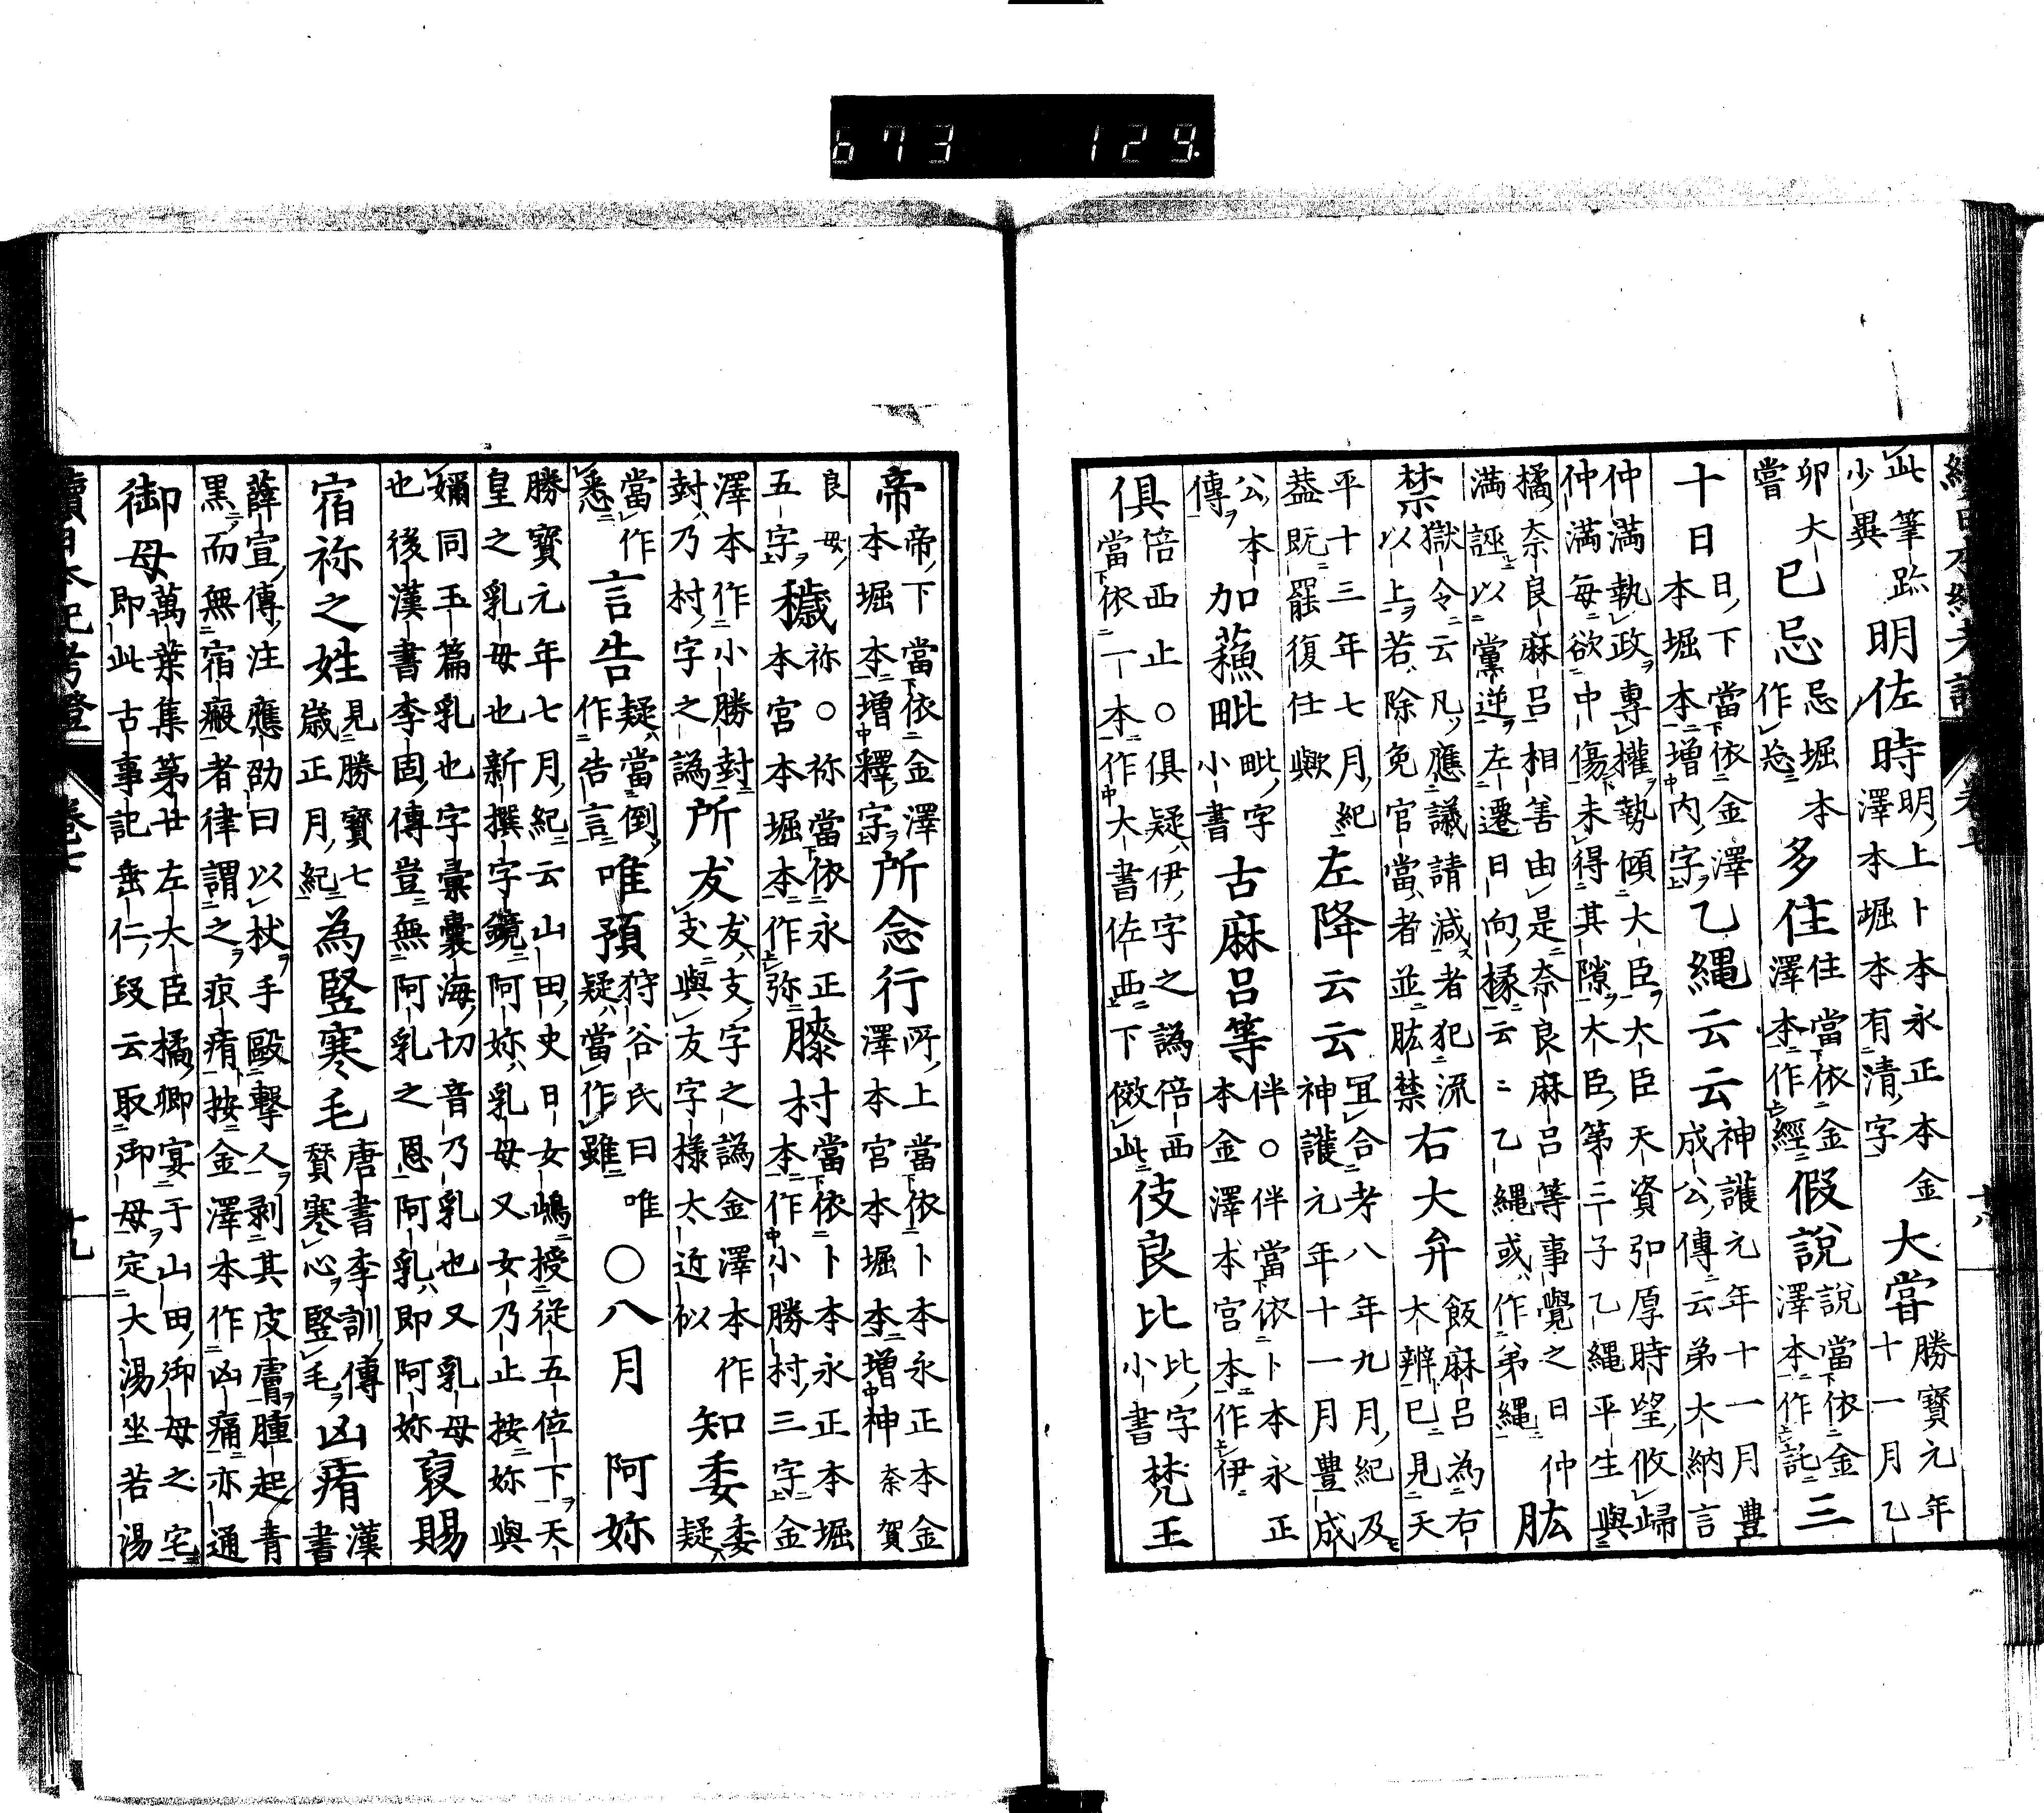 此筆跡少異明佐時明上卜本永正本金澤本堀本有清字大甞勝寳元年十一月乙
卯大嘗已忌忌堀本作忘多住住當依金澤本作經假說說當依金澤本作託三
十日日下當依金澤本堀本增内字乙繩云云神護元年十一月豊成公傳云弟大納言
仲滿執政專權勢傾大臣大臣天資弘厚時望攸歸仲滿每欲中傷未得其隙大臣第三子乙繩平生與
橘奈良麻呂相善由是奈良麻呂等事覺之日仲滿誣以黨逆左遷日向掾云〻乙繩或作弟繩肱
禁獄令云凡應議請減者犯流以上若除免官當者並肱禁右大弁飯麻呂為右大辨已見天
平十三年七月紀葢既罷復任歟左降云云冝合考八年九月紀及神護元年十一月豊成
公傳本加蘓毗毗字小書古麻呂等伴〇伴當依卜本永正本金澤本宮本作伊
俱倍西止〇俱疑伊字之譌倍西當依一本作大書佐西下傚此伎良比比字小書梵王
帝帝下當依金澤本堀本增釋字所念行所上當依卜本永正本金澤本宮本堀本增神奈賀
良毋五字穢祢〇祢當依永正本宮本堀本作弥膝村當依卜本永正本堀本作小勝村三字金
澤本作小勝封封乃村字之譌所犮犮支字之譌金澤本作支與友字樣太近似知委委疑
當作悉言告疑當倒作告言唯預狩谷氏曰唯疑當作雖〇八月阿妳
勝寳元年七月紀云山田史日女嶋授從五位下天皇之乳母也新撰字鏡阿妳乳母又女乃止按妳與
嬭同玉篇乳也字彙囊海切音乃乳也又乳母也後漢書李固傳豈無阿乳之恩阿乳即阿妳裒賜
宿祢之姓見勝寳七歲正月紀為竪寒毛唐書李訓傳賛寒心竪毛凶痏漢書
薛宣傳注應劭曰以杖手毆擊人剥其皮膚腫起青黑而無宿瘢者律謂之疻痏按金澤本作凶痛亦通
御母萬葉集第廿左大臣橘卿宴于山田御母之宅即此古事記垂仁段云取御母定大湯坐若湯